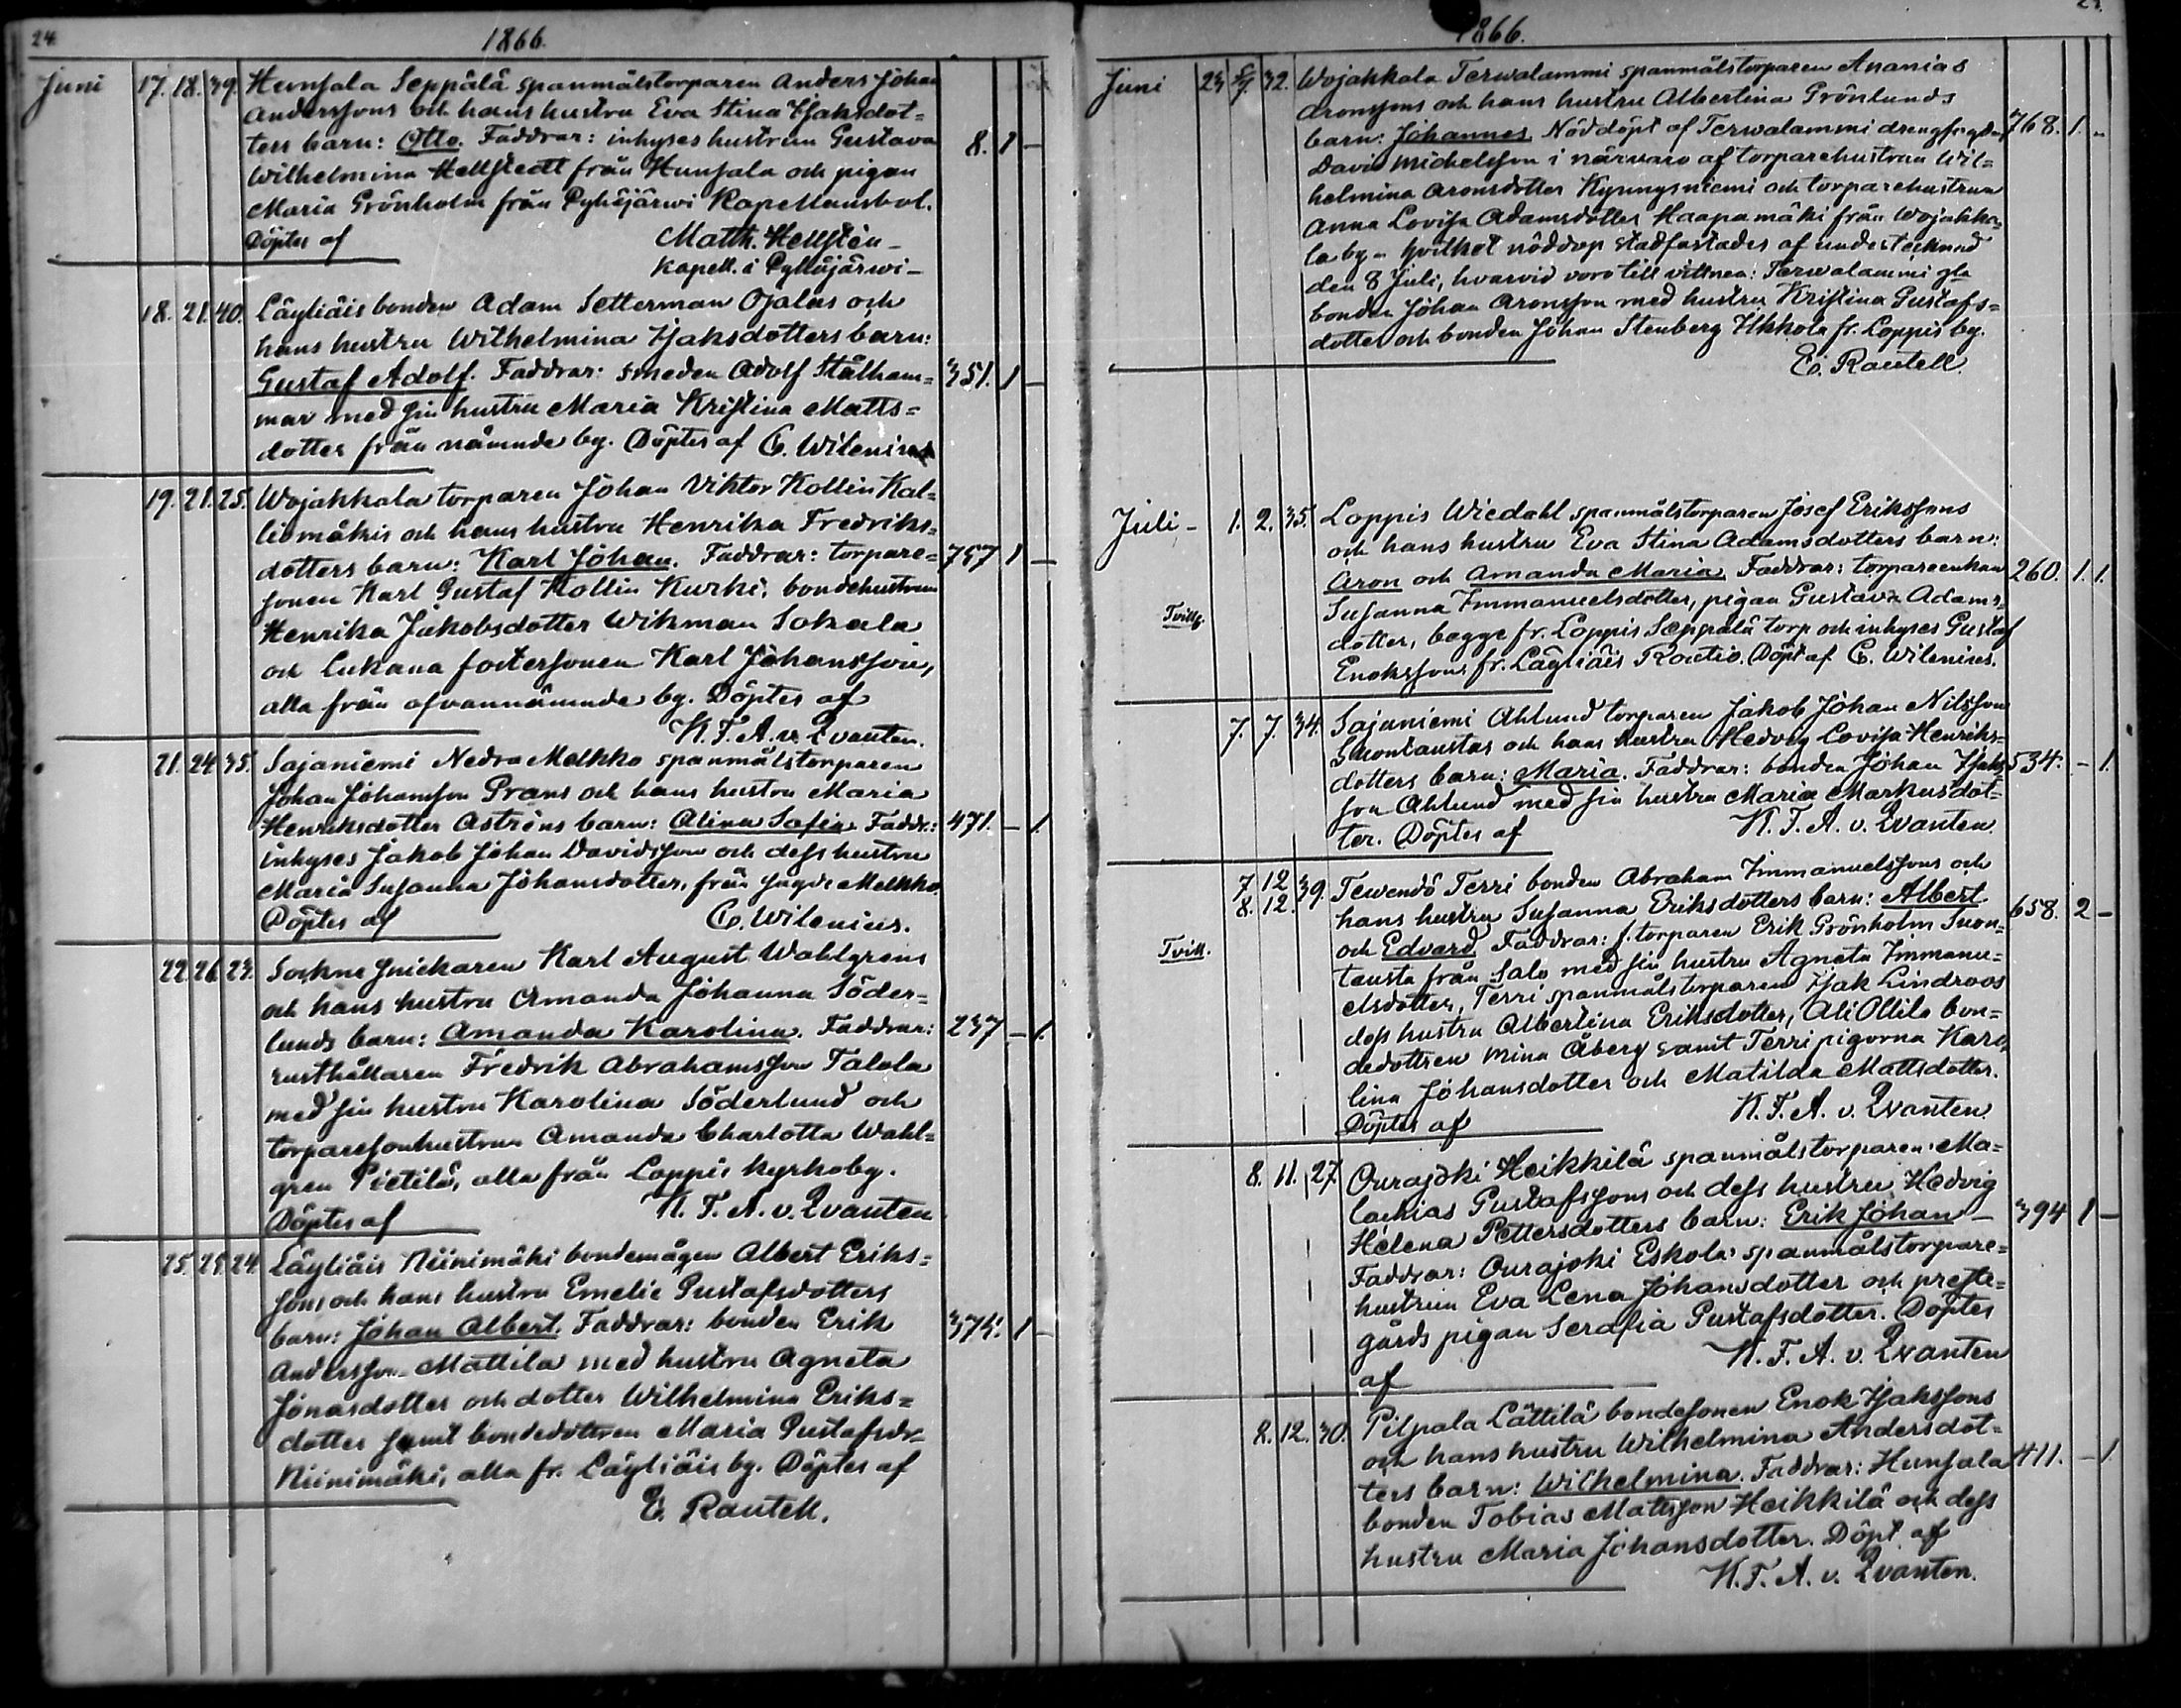 24.
1866.
Juni 17. 18. 39. Hunsala Seppälä spanmålstorparen Anders Johan
Anderssons och hans hustru Eva Stina Isaksdot=
ters barn: Otto. Faddrar: inhyses hustrun Gustava 8. 1 —
Wilhelmina Hellstedt från Hunsala och pigan
Maria Grönholm från Pyhäjärwi Kapellansbol.
Döptes af Matth. Hellstén –
Kapell. i Pyhäjärwi –
18. 21. 40. Läyliäis bonden Adam Setterman Ojalas och
hans hustru Wilhelmina Isaksdotters barn:
Gustaf Adolf. Faddrar: smeden Adolf Stålham= 351. 1 —
mar med sin hustru Maria Kristina Matts=
dotter från nämnde by. Döptes af C. Wilenius
19. 21. 25. Wojakkala torparen Johan Viktor Kollin Kal=
liomäkis och hans hustru Henrika Fredriks=
dotters barn: Karl Johan. Faddrar: torpare= 757 1 —
sonen Karl Gustaf Kollin Kurki, bondehustrun
Henrika Jakobsdotter Wikman Sokala
och Lukana fostersonen Karl Johansson,
alla från ofvannämnde by. Döptes af
K. F. A. v. Qvanten.
21. 24. 35. Sajaniemi Nedra Melkko spanmålstorparen
Johan Johansson Prans och hans hustru Maria
Henriksdotter Aströns barn: Alina Safia. Faddr.: 471. — 1.
inhyses Jakob Johan Davidsson och dess hustru
Maria Susanna Johansdotter, från sagde Melkko.
Döptes af C. Wilenius.
22. 26. 23. Sockne snickaren Karl August Wahlgrens
och hans hustru Amanda Johanna Söder=
lunds barn: Amanda Karolina. Faddrar: 237 — 1.
rusthållaren Fredrik Abrahamsson Talola
med sin hustru Karolina Söderlund och
torparesonhustrun Amanda Charlotta Wahl=
gren Pietilä, alla från Loppis kyrkoby.
Döptes af K. F. A. v. Qvanten
25. 29. 24. Läyliäis Niinimäki bondemågen Albert Eriks=
sons och hans hustru Emelie Gustafsdotters
barn: Johan Albert. Faddrar: bonden Erik 374. 1 —
Andersson Mattila med hustru Agneta
Jonasdotter och dotter Wilhelmina Eriks=
dotter samt bondedottren Maria Gustafsdr
Niinimäki, alla fr. Läyliäis by. Döptes af
E. Rautell.
1866.
Juni 23 8/7. 32. Wojakkala Terwalammi spanmålstorparen Ananias
Aronssons och hans hustru Albertina Grönlunds
barn: Johannes. Nöddöpt af Terwalammi 768. 1. —
David Michelsson i närvaro af torparehustrun Wil=
helmina Aronsdotter Kynnysniemi och torparehustrun
Anna Lovisa Adamsdotter Haapamäki från Wojakka=
la by – hvilket nöddop stadfästades af undertecknad
den 8 Juli, hvarvid voro till vittnen: Terwalammi gla
bonden Johan Aronsson med hustru Kristina Gustafs=
dotter och bonden Johan Stenberg Ilkkola fr. Loppis by.
E. Rautell.
Juli – 1. 2. 35. Loppis Wiedahl spanmålstorparen Josef Erikssons
och hans hustru Eva Stina Adamsdotters barn:
Aron och Amanda Maria. Faddrar: torpareenkan 260. 1. 1.
Tvillg. Susanna Immanuelsdotter, pigan Gustava Adams=
dotter, bägge fr. Loppis Seppälä torp och inhyses Gustaf
Enokssons fr. Läyliäis Rautio. Döpt af C. Wilenius.
7. 7. 34. Sajaniemi Ahlund torparen Jakob Johan Nilsson
Suontaustas och hans hustru Hedvig Lovisa Henriks=
dotters barn: Maria. Faddrar: bonden Johan Isaks 534. — 1.
son Ahlund med sin hustru Maria Markusdot=
ter. Döptes af K. F. A. v. Qvanten.
7 12
8. 12. 39. Tewendö Terri bonden Abraham Immanuelssons och
hans hustru Susanna Eriksdotters barn: Albert 658. 2 —
Tvill. och Edvard. Faddrar: f. torparen Erik Grönholm Suon=
tausta från Salo med sin hustru Agneta Immanu=
elsdotter, Terri spanmålstorparen Isak Lindroos
dess hustru Albertina Eriksdotter, Ali Ollila bon=
dedottren Mina Åberg samt Terri pigorna Karo=
lina Johansdotter och Matilda Mattsdotter.
Döptes af K. F. A. v. Qvanten.
8. 11. 27. Ourajoki Heikkilä spanmålstorparen Ma=
lachias Gustafssons och dess hustru Hedvig
Helena Pettersdotters barn: Erik Johan – 394 1 —
Faddrar: Ourajoki Eskola spanmålstorpare=
hustrun Eva Lena Johansdotter och preste=
gårds pigan Serafia Gustafsdotter. Döptes
af K. F. A. v. Qvanten
8. 12. 30. Pilpala Lättilä bondesonen Enok Isakssons
och hans hustru Wilhelmina Andersdot=
ters barn: Wilhelmina. Faddrar: Hunsala 411. — 1
bonden Tobias Mattsson Heikkilä och dess
hustru Maria Johansdotter. Döpt af
K. F. A. v. Qvanten.